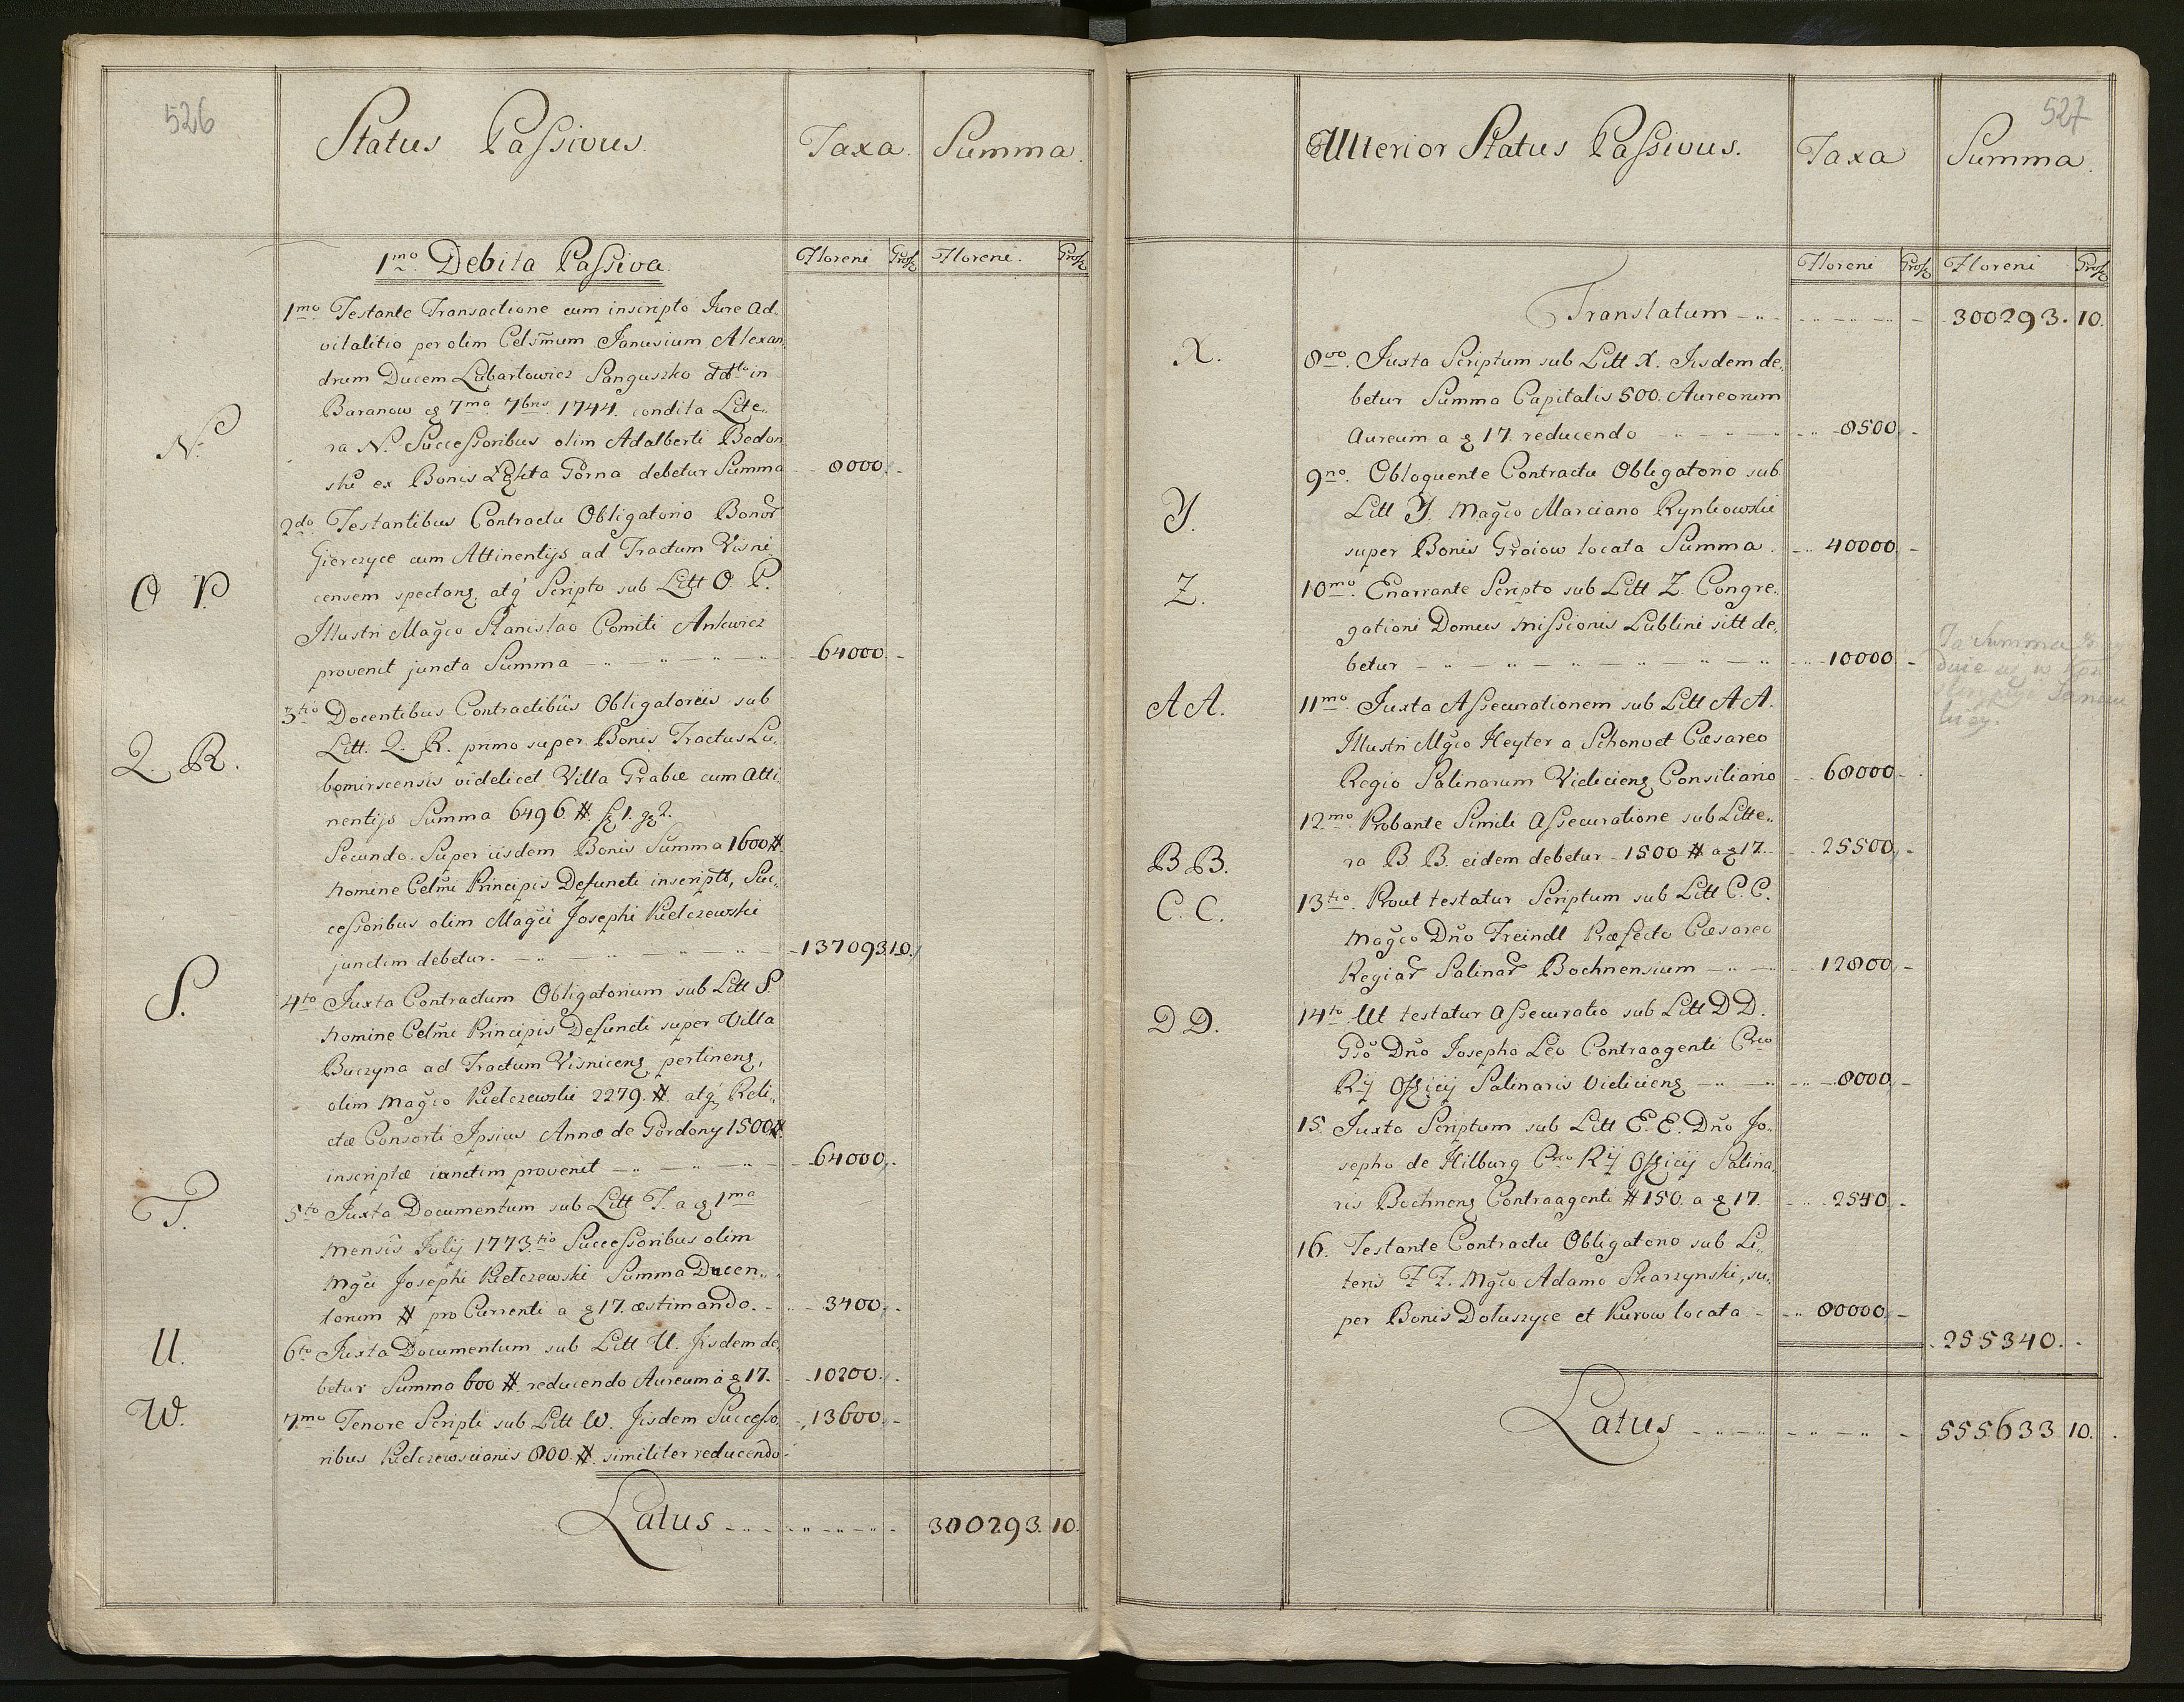 526
Status Passivus.
Taxa.
Summa.
Floreni
Grosz
Floreni.
Grosz
1mo. Debita Passiva.
1mo. Testante Transactione cum inscripto Jure Ad-
vitalitio per olim Celsm̃um Janusium Alexan
drum Ducem Lubartowicz Sanguszko ddtto in
Baranow 7ma 7bris 1744. condita Lite..
N.
ra N. Successoribus olim Adalberti Bedon
ski ex Bonis Zgłita Gorna debetur Summa 8000. -
2do Testantibus Contractu Obligatorio Bonor
Gierczyce cum Attinentijs ad Tractum Visni
O P.
censem spectan, atq́ Scripto sub Litt O. P.
Illustri Magco Stanislao Comiti Ankwicz
provenit juncta Summa 64000. -
3tio Docentibus Contractibus Obligatoriis sub
Q. R.
Litt. Q. R. primo super Bonis Tractus Lu-
bomirscensis videlicet Villa Grabie cum Atti
nentijs Summa 6496 #. 1. 2.
Secundo. Super iisdem Bonis Summa 1600 #.
Nomine Celm̃i Principis Defuncti inscripta, Suc-
cessoribus olim Magci Josephi Kielczewski
junctim debetur. 137093. 10.
S.
4to Juxta Contractum Obligatorium sub Litt S.
Nomine Celm̃i Principis Defuncti super Villa
Buczyna ad Tractum Visnicen pertinen,
olim Magco Kielczewski 2279. # atq́ Reli..
ctæ Consorti Ipsius Annæ de Gordony 1500 #.
inscriptæ iunctim provenit 64000. -
T.
5to Juxta Documentum sub Litt T. a 1ma
Mensis Julij 1773tio Successoribus olim
Mgci Josephi Kielczewski Summa Ducen..
torum # pro Currenti a 17. æstimando. 3400. -
U.
6to Juxta Documentum sub Litt U. Jisdem de-
betur Summa 600 #. reducendo Aureum á 17. 10200. -
W.
7mo Tenore Scripti sub Litt W. Jisdem Successo 13600. -
ribus Kielczewscianis 800. #. similiter reducendo
Latus 300293. 10.
527
Ulterior Status Passivus.
Taxa
Summa.
Floreni
Grosz
Floreni
Grosz
Translatum 300293. 10.
X.
8vo. Juxta Scriptum sub Litt X. Jisdem de-
betur Summa Capitalis 500. Aureorum
Aureum a 17. reducendo 8500. -
9no. Obloquente Contractu Obligatorio sub
Y.
Litt Y. Magco Marciano Rynkowski
super Bonis Groiow locata Summa. 40000. -
Z.
10mo. Enarrante Scripto sub Litt Z. Congre-
gationi Domus Missionis Lublini sitt de-
betur 10000. -
Ta Summa
AA.
11mo. Juxta Assecurationem sub Litt AA.
Illustri Mgco Heyter a Schonvet Cæsareo
Regio Salinarum Vielicien Consiliario 68000. -
12mo. Probante Simili Assecuratione sub Litte..
BB.
ra B B. eidem debetur 1500 # a 17. 25500. -
C. C.
13tio. Prout testatur Scriptum sub Litt C. C.
Magco Dño Freindl Præfecto Cæsareo
Regiar Salinar Bochnensium 12800. -
DD.
14to. Ut testatur Assecuratio sub Litt DD.
Gso Dño Josepho Leo Contraagenti Creo
Rij Officij Salinaris Vielicien 8000. -
15. Juxta Scriptum sub Litt E. E. Dño Jo-
sepho de Hilburg Creo Rij Officij Salina
ris Bochnen Contraagenti # 150. a 17. 2540. -
16. Testante Contractu Obligatorio sub Li..
teris F F. Mgco Adamo Skarzynski, su-
per Bonis Dołuszyce et Kurow locata 80000. -
255340. -
Latus 555633 10.